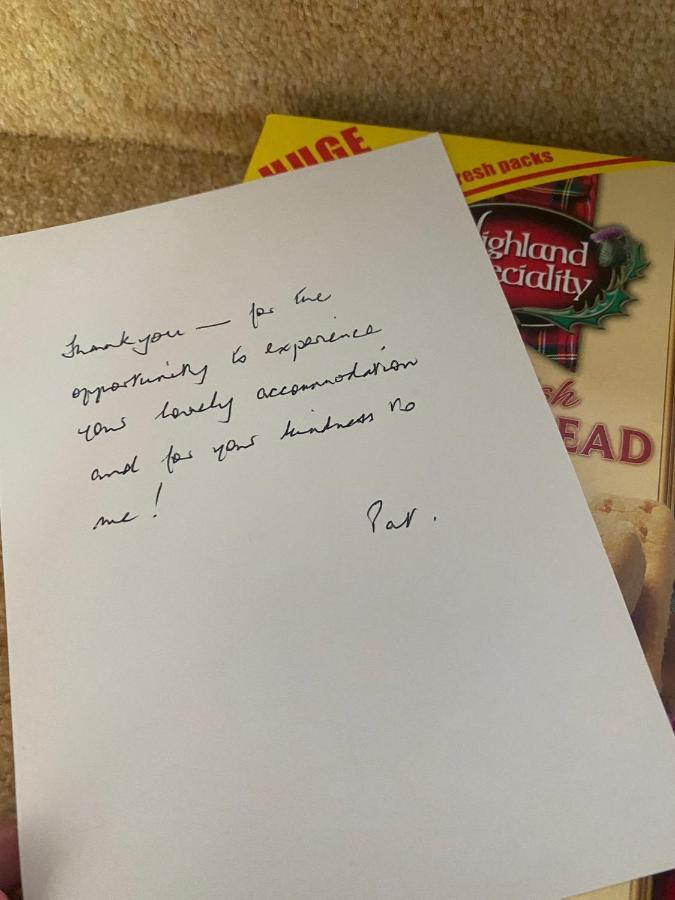 HUGE
resh packs
ighland
eciality
sh
EAD
Thank you — for the
opportunity to experience
your lovely accommodation
and for your kindness to
me!
Pat.